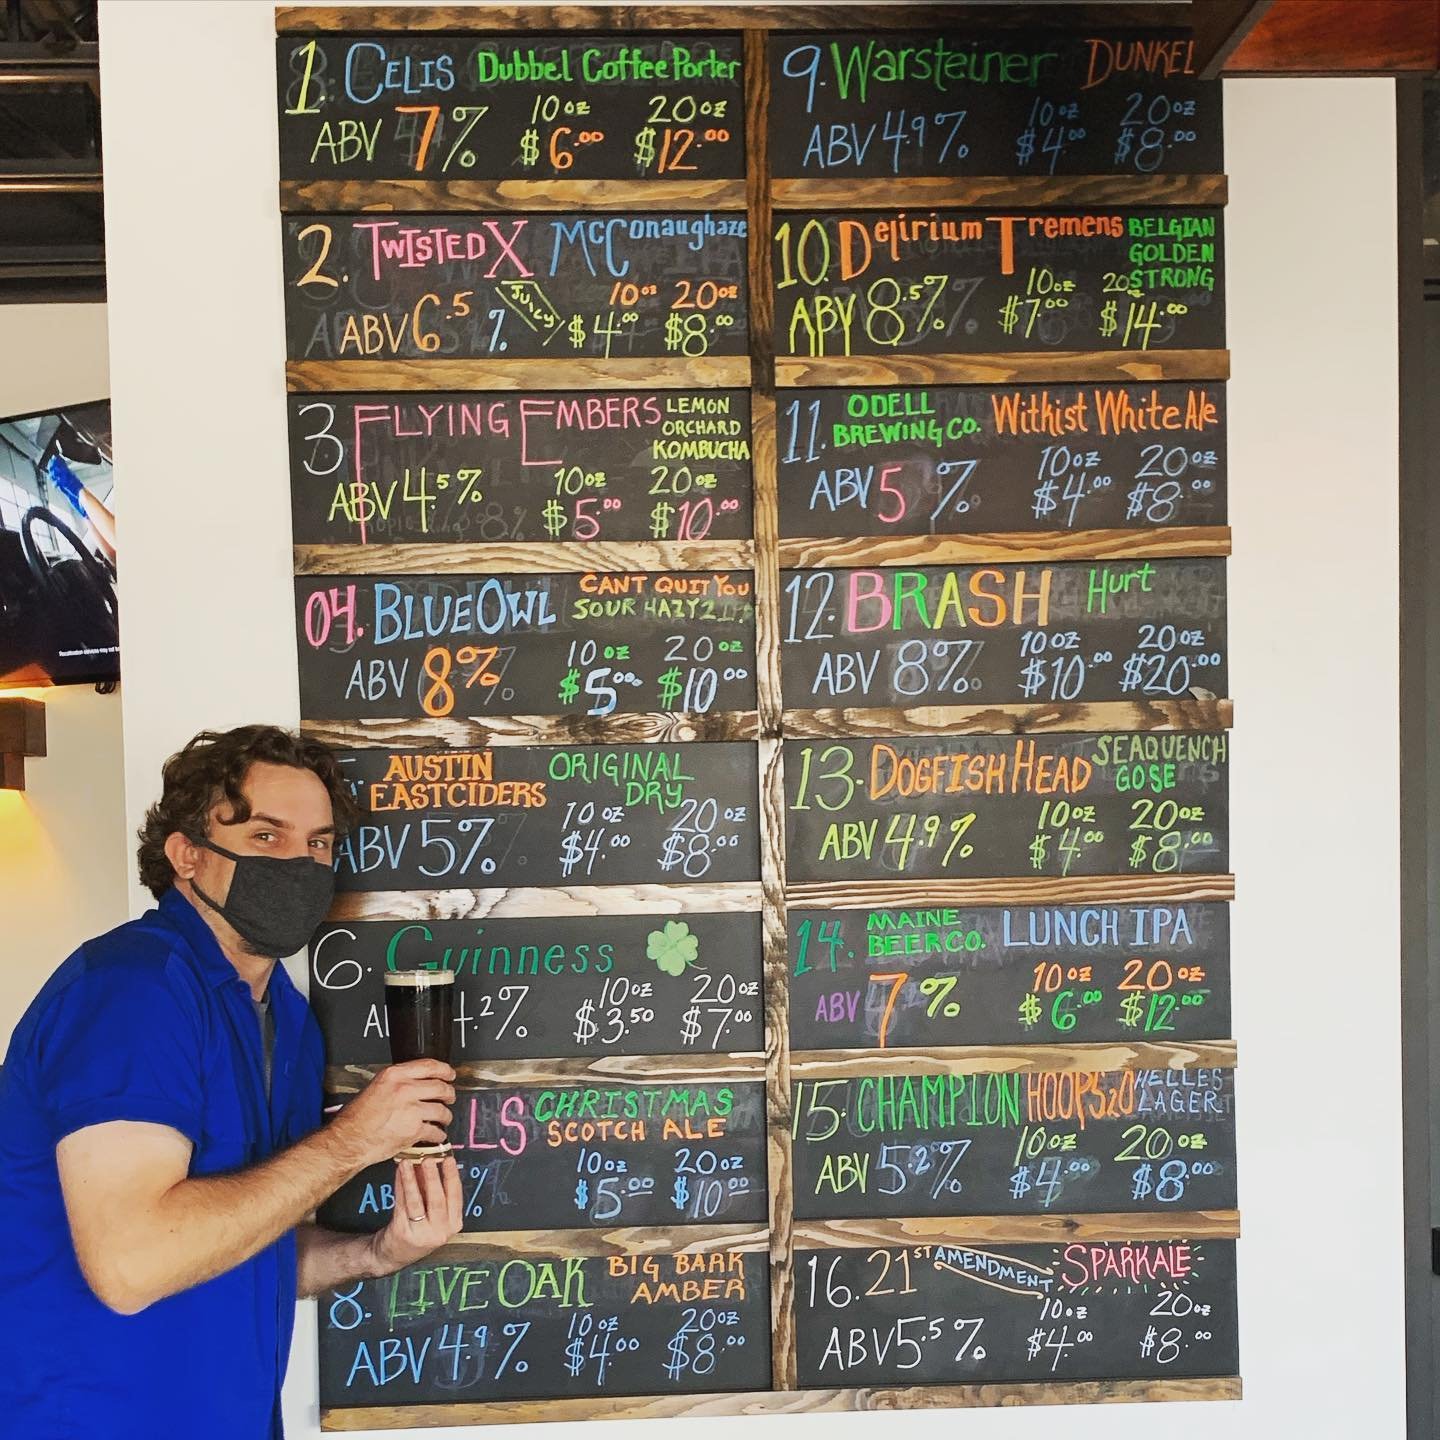 1. CELIS Dubbel Coffee Porter
10oz 20oz
ABV 7% $6.00 $12.00
2. TWISTED X McConaughaze
JUICY 10oz 20oz
ABV 6.5% $4.00 $8.00
3 FLYING EMBERS LEMON
ORCHARD
KOMBUCHA
ABV 4.5% 10oz 20oz
$5.00 $10.00
04. BLUE OWL CANT QUIT YOU
SOUR HAZY
ABV 8% 10oz 20oz
$5.00 $10.00
AUSTIN ORIGINAL
EASTCIDERS DRY
10oz 20oz
ABV 5% $4.00 $8.00
6. Guinness
10oz 20oz
.2% $3.50 $7.00
LLS CHRISTMAS
SCOTCH ALE
10oz 20oz
AB % $5.00 $10.00
8. LIVE OAK BIG BARK
AMBER
10oz 20oz
ABV 4.9% $4.00 $8.00
9. Warsteiner DUNKEL
10oz 20oz
ABV 4.9% $4.00 $8.00
10. Delirium Tremens BELGIAN
GOLDEN
STRONG
10oz 20oz
ABV 8.5% $7.00 $14.00
11. ODELL Withist White Ale
BREWING CO.
10oz 20oz
ABV 5% $4.00 $8.00
12. BRASH Hurt
10oz 20oz
ABV 8% $10.00 $20.00
13. DOGFISH HEAD SEAQUENCH
GOSE
10oz 20oz
ABV 4.9% $4.00 $8.00
14. MAINE LUNCH IPA
BEER CO.
10oz 20oz
ABV 7% $6.00 $12.00
15. CHAMPION HOOPS 20 HELLES
LAGER
10oz 20oz
ABV 5.2% $4.00 $8.00
16. 21ST AMENDMENT SPARKALE
10oz 20oz
ABV 5.5% $4.00 $8.00